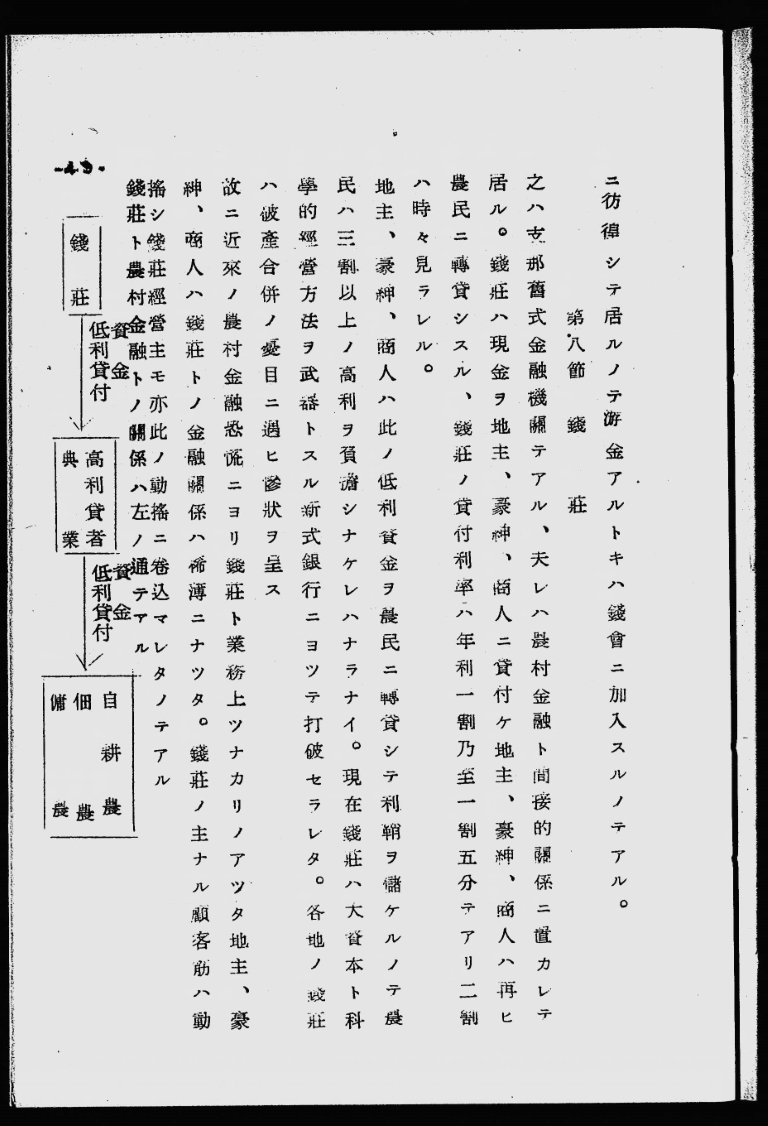 ニ彷徨シテ居ルノテ游金アルトキハ錢會ニ加入スルノテアル。
第八節　錢　莊
之ハ支那舊式金融機關テアル、夫レハ農村金融ト間接的關係ニ置カレテ
居ル。錢莊ハ現金ヲ地主、豪紳、商人ニ貸付ケ地主、豪紳、商人ハ再ヒ
農民ニ轉貸シスル、錢莊ノ貸付利率ハ年利一割乃至一割五分テアリ二割
ハ時々見ラレル。
地主、豪紳、商人ハ此ノ低利資金ヲ農民ニ轉貸シテ利鞘ヲ儲ケルノテ農
民ハ三割以上ノ高利ヲ負擔シナケレハナラナイ。現在錢莊ハ大資本ト科
學的經營方法ヲ武器トスル新式銀行ニヨツテ打破セラレタ。各地ノ錢莊
ハ破產合併ノ憂目ニ遇ヒ慘狀ヲ呈ス
故ニ近來ノ農村金融恐慌ニヨリ錢莊ト業務上ツナカリノアツタ地主、豪
紳、商人ハ錢莊トノ金融關係ハ稀薄ニナツタ。錢莊ノ主ナル顧客筋ハ動
搖シ錢莊經營主モ亦此ノ動搖ニ卷込マレタノテアル
錢莊ト農村金融トノ關係ハ左ノ通テアル
錢　莊
資金
低利貸付
高利貸者
典　業
資金
低利貸付
自耕農
佃　農
傭　農
-49-